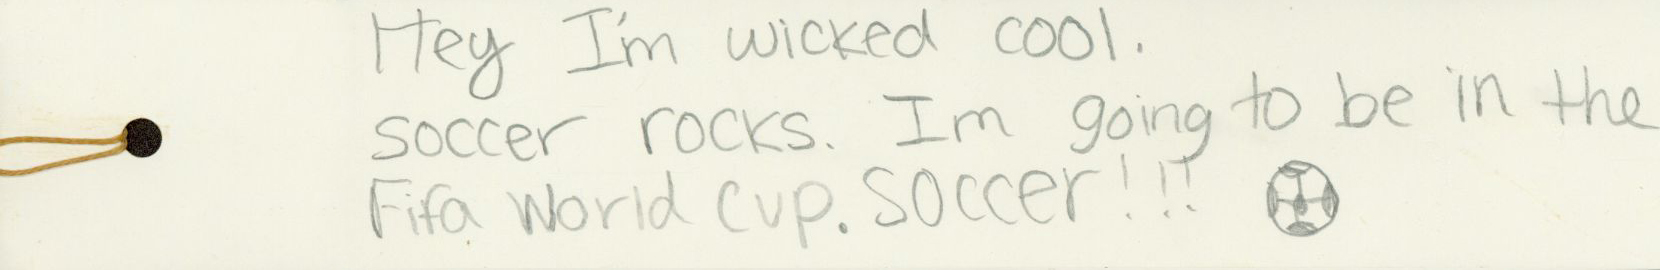 Hey I'm wicked cool.
soccer rocks. Im going to be in the
Fifa World Cup. Soccer!!!